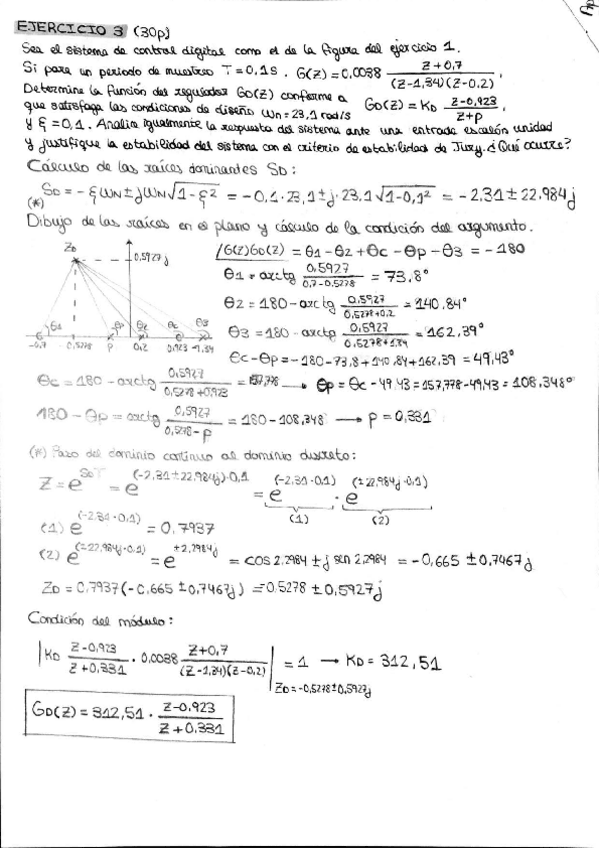 EJERCICIO 3 (30p)
Sea el sistema de control digital como el de la figura del ejercicio 1.
Si para un periodo de muestreo T = 0,1s. G(Z) = 0,0038 Z+0,7 / (Z-1,34)(Z-0,2).
Determine la función del regulador GD(Z) conforme a GD(Z) = KD Z-0,923 / Z+p,
que satisfaga las condiciones de diseño ωn = 23,1 rad/s
y ξ = 0,1. Analice igualmente la respuesta del sistema ante una entrada escalón unidad
y justifique la estabilidad del sistema con el criterio de estabilidad de Jury. ¿Qué ocurre?
Cálculo de las raíces dominantes SD:
SD = - ξωN ± jωN √1-ξ² = -0,1·23,1 ± j·23,1 √1-0,1² = -2,31 ± 22,984j
(*)
Dibujo de las raíces en el plano y cálculo de la condición del argumento.
ZD
0,5927j
θ1 θp θ2 θc θ3
-0,7 -0,5278 p 0,2 0,923 -1,34
/G(Z)GD(Z) = θ1 - θ2 + θc - θp - θ3 = -180
θ1 = arctg 0,5927 / 0,7-0,5278 = 73,8°
θ2 = 180 - arctg 0,5927 / 0,5278+0,2 = 140,84°
θ3 = 180 - arctg 0,5927 / 0,5278+1,34 = 162,39°
θc - θp = -180 - 73,8 + 140,84 + 162,39 = 49,43°
θc = 180 - arctg 0,5927 / 0,5278+0,923 = 157,778 → θp = θc - 49,43 = 157,778 - 49,43 = 108,348°
180 - θp = arctg 0,5927 / 0,5278-p = 180 - 108,348 → p = 0,331
(*) Paso del dominio continuo al dominio discreto:
Z = e^SDT = e^(-2,31±22,984j)·0,1 = e^(-2,31·0,1) · e^(±22,984j·0,1)
(1) (2)
(1) e^(-2,31·0,1) = 0,7937
(2) e^(±22,984j·0,1) = e^±2,2984j = cos 2,2984 ± j sen 2,2984 = -0,665 ± 0,7467j
ZD = 0,7937(-0,665 ± 0,7467j) = -0,5278 ± 0,5927j
Condición del módulo:
|KD Z-0,923 / Z+0,331 · 0,0038 Z+0,7 / (Z-1,34)(Z-0,2)| ZD=-0,5278±0,5927j = 1 → KD = 312,51
GD(Z) = 312,51 · Z-0,923 / Z+0,331